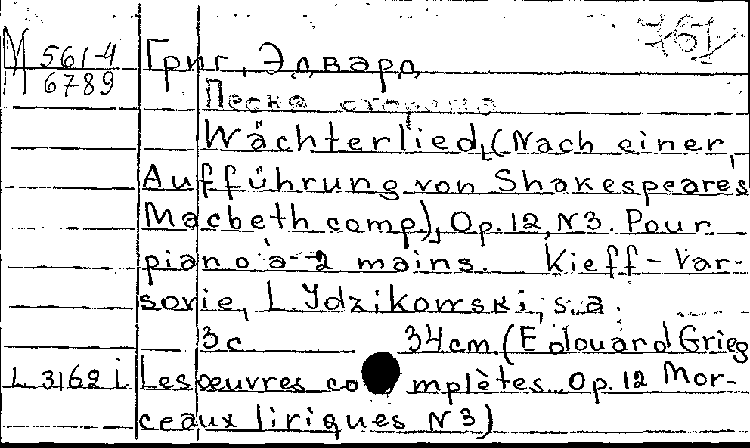 761
М 561-4 Григ, Эдвард
6789
Песня сторожа
Wächterlied, (Nach einer
Aufführung von Shakespeares
Macbeth comp), Op. 12, N 3. Pour
piano à 2 mains. Kieff-Var-
sovie, L Idzikowski, s.a.
3 c 34 cm. (Edouard Grieg
L 3162 i Les œuvres complètes. Op. 12 Mor-
ceaux liriques N 3)